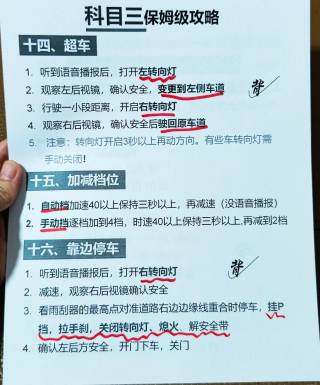 科目三保姆级攻略
十四、超车
1. 听到语音播报后，打开左转向灯
2. 观察左后视镜，确认安全，变更到左侧车道
3. 行驶一小段距离，开启右转向灯
4. 观察右后视镜，确认安全后驶回原车道
5. 注意：转向灯开启3秒以上再动方向。有些车转向灯需
手动关闭！
背
十五、加减档位
1. 自动档加速40以上保持三秒以上，再减速（没语音播报）
2. 手动档逐档加到4档，时速40以上保持三秒以上,再减到2档
十六、靠边停车
1. 听到语音播报后，打开右转向灯
2. 减速，观察右后视镜确认安全
3. 看雨刮器的最高点对准道路右边边缘线重合时停车，挂P
挡，拉手刹，关闭转向灯、熄火、解安全带
4. 确认左后方安全，开门下车，关门
背